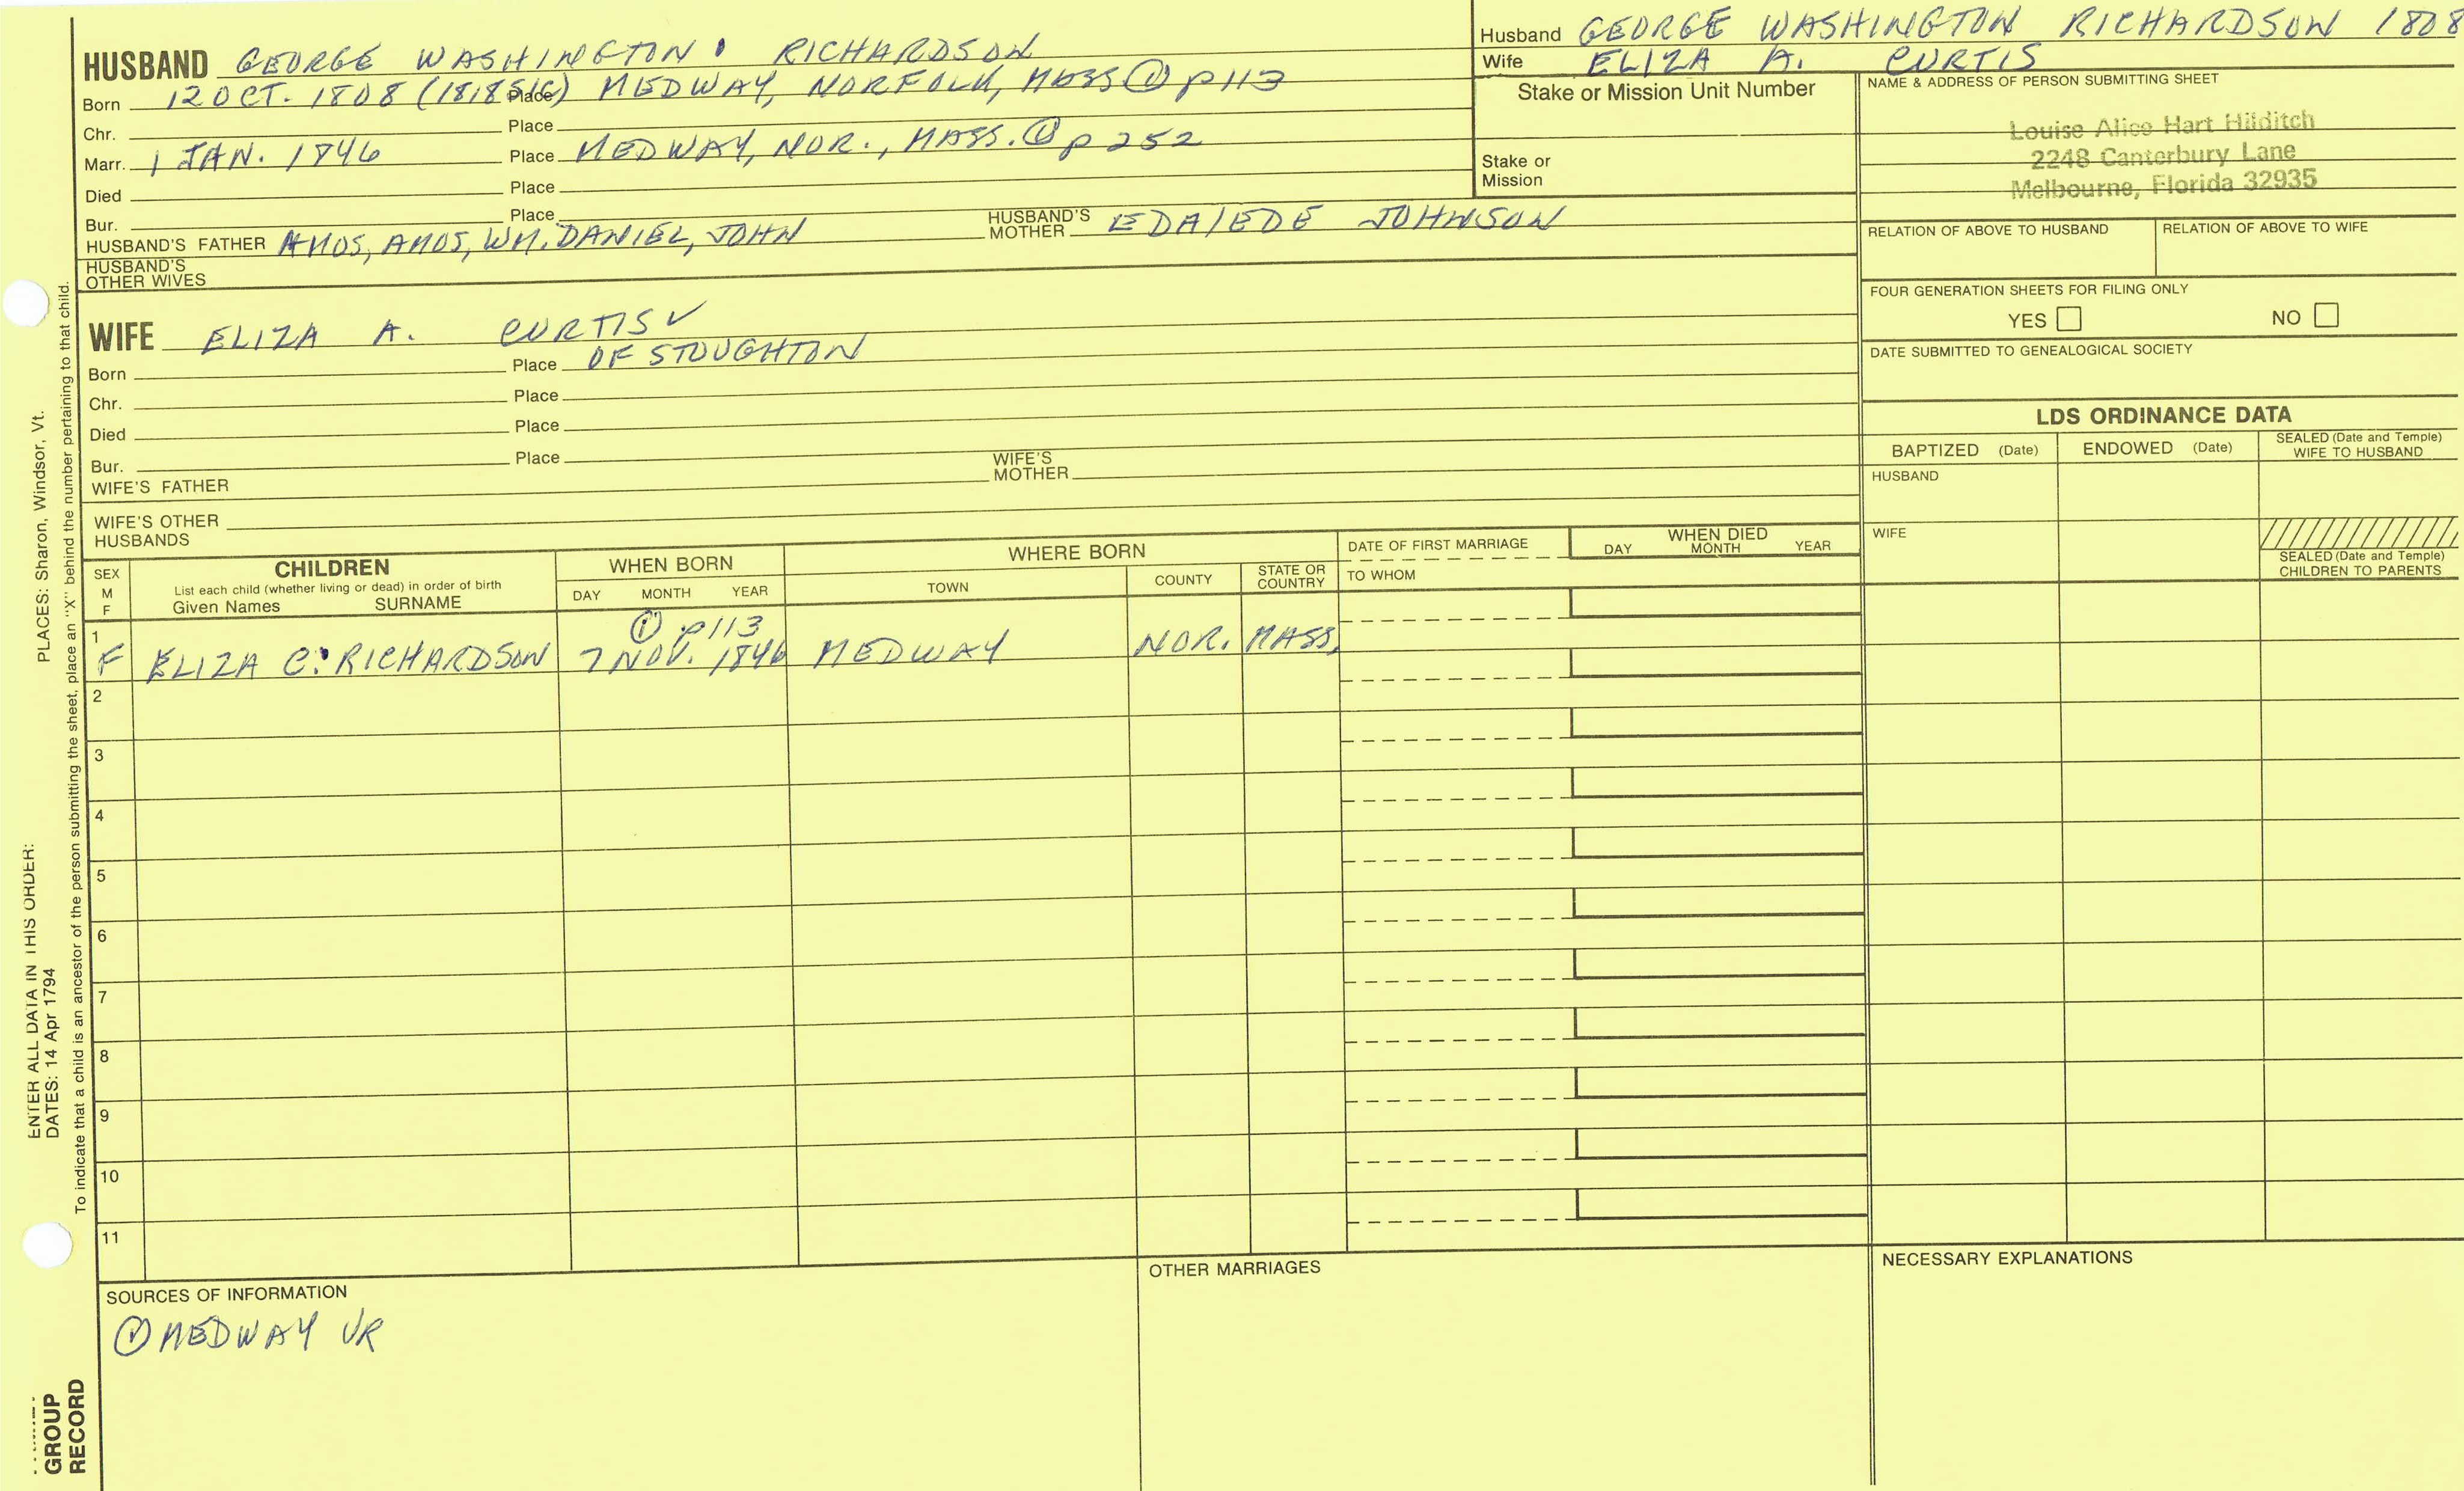 HUSBAND GEORGE WASHINGTON RICHARDSON
Born 12 OCT. 1808 Place MEDWAY, NORFOLK, MASS ① p113
Chr. Place
Marr. 1 JAN. 1846 Place MEDWAY, NOR., MASS. ① p 252
Died Place
Bur. Place
HUSBAND'S FATHER AMOS, AMOS, WM. DANIEL, JOHN HUSBAND'S MOTHER EDA/EDE JOHNSON
HUSBAND'S OTHER WIVES
WIFE ELIZA A. CURTIS ✓
Born Place OF STOUGHTON
Chr. Place
Died Place
Bur. Place
WIFE'S FATHER WIFE'S MOTHER
WIFE'S OTHER HUSBANDS
Husband GEORGE WASHINGTON RICHARDSON 1808
Wife ELIZA A. CURTIS
Stake or Mission Unit Number
Stake or
Mission
NAME & ADDRESS OF PERSON SUBMITTING SHEET
Louise Alice Hart Hilditch
2248 Canterbury Lane
Melbourne, Florida 32935
RELATION OF ABOVE TO HUSBAND RELATION OF ABOVE TO WIFE
FOUR GENERATION SHEETS FOR FILING ONLY
YES NO
DATE SUBMITTED TO GENEALOGICAL SOCIETY
LDS ORDINANCE DATA
BAPTIZED (Date) ENDOWED (Date) SEALED (Date and Temple) WIFE TO HUSBAND
HUSBAND
WIFE
SEALED (Date and Temple)
CHILDREN TO PARENTS
SEX M F
CHILDREN
List each child (whether living or dead) in order of birth
Given Names SURNAME
WHEN BORN
DAY MONTH YEAR
WHERE BORN
TOWN COUNTY STATE OR COUNTRY
DATE OF FIRST MARRIAGE
TO WHOM
WHEN DIED
DAY MONTH YEAR
1 ① p113
F ELIZA C. RICHARDSON 7 NOV. 1846 MEDWAY NOR. MASS.
2
3
4
5
6
7
8
9
10
11
SOURCES OF INFORMATION
① MEDWAY VR
OTHER MARRIAGES
NECESSARY EXPLANATIONS
ENTER ALL DATA IN THIS ORDER:
DATES: 14 Apr 1794 PLACES: Sharon, Windsor, Vt.
To indicate that a child is an ancestor of the person submitting the sheet, place an "X" behind the number pertaining to that child.
GROUP
RECORD